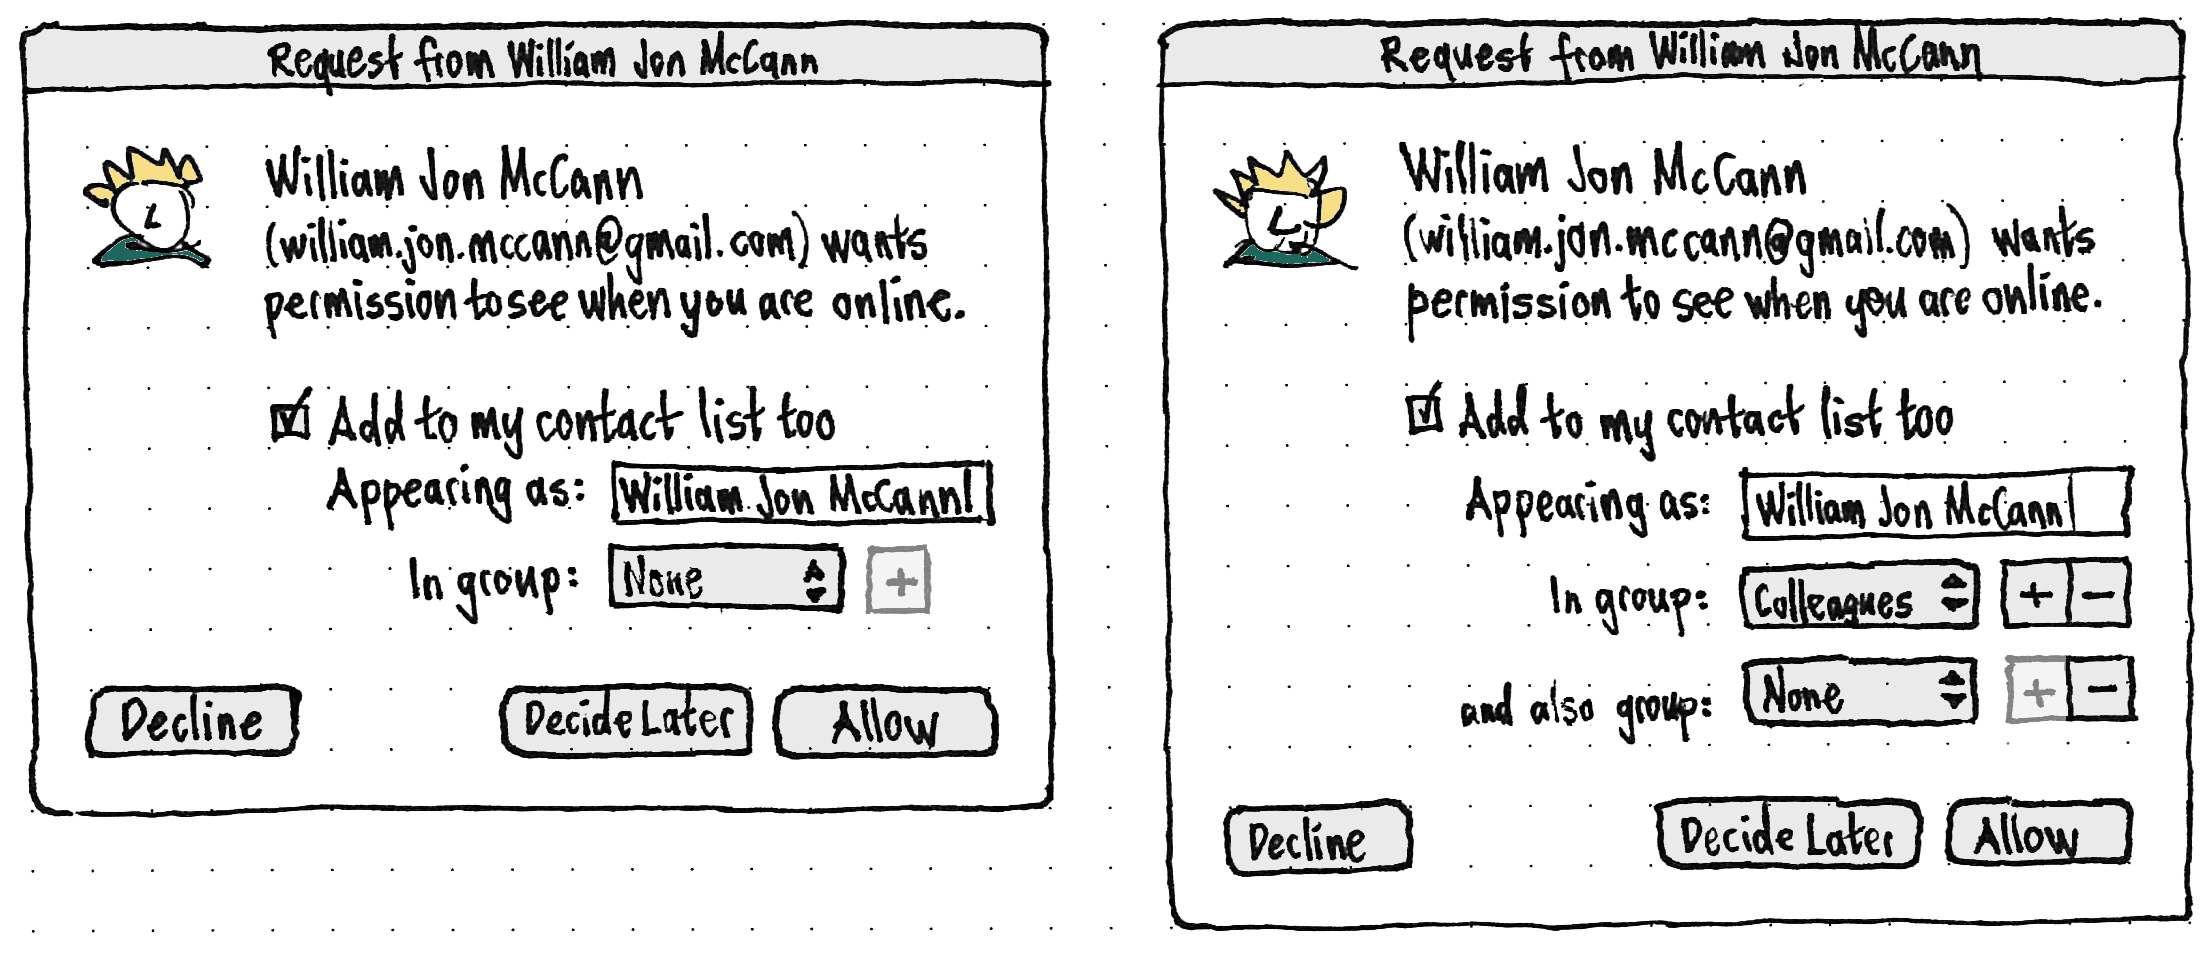 Request from William Jon McCann
William Jon McCann
(william.jon.mccann@gmail.com) wants
permission to see when you are online.
Add to my contact list too
Appearing as: William Jon McCann
In group: None +
Decline Decide Later Allow
Request from William Jon McCann
William Jon McCann
(william.jon.mccann@gmail.com) wants
permission to see when you are online.
Add to my contact list too
Appearing as: William Jon McCann
In group: Colleagues + −
and also group: None + −
Decline Decide Later Allow